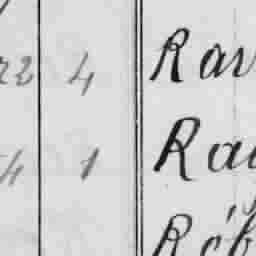 22 4 Rav
4 1 Ra
Réb